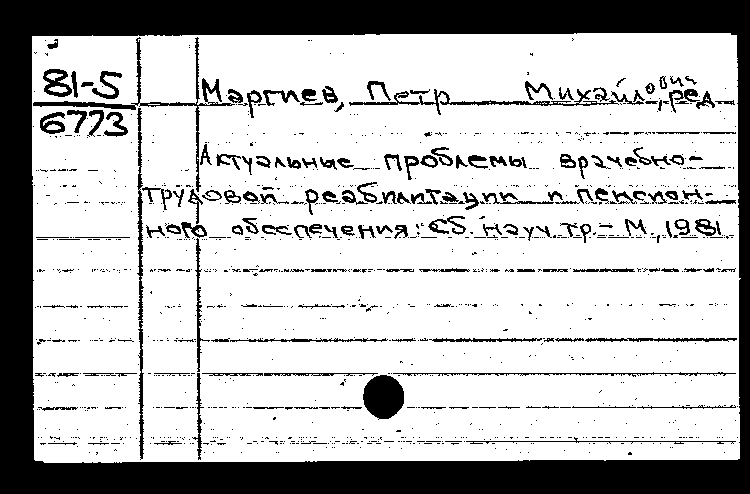 81-5
6773
Маргиев, Петр Михайлович, ред
Актуальные проблемы врачебно-
трудовой реабилитации и пенсион-
ного обеспечения: Сб. науч. тр.- М., 1981